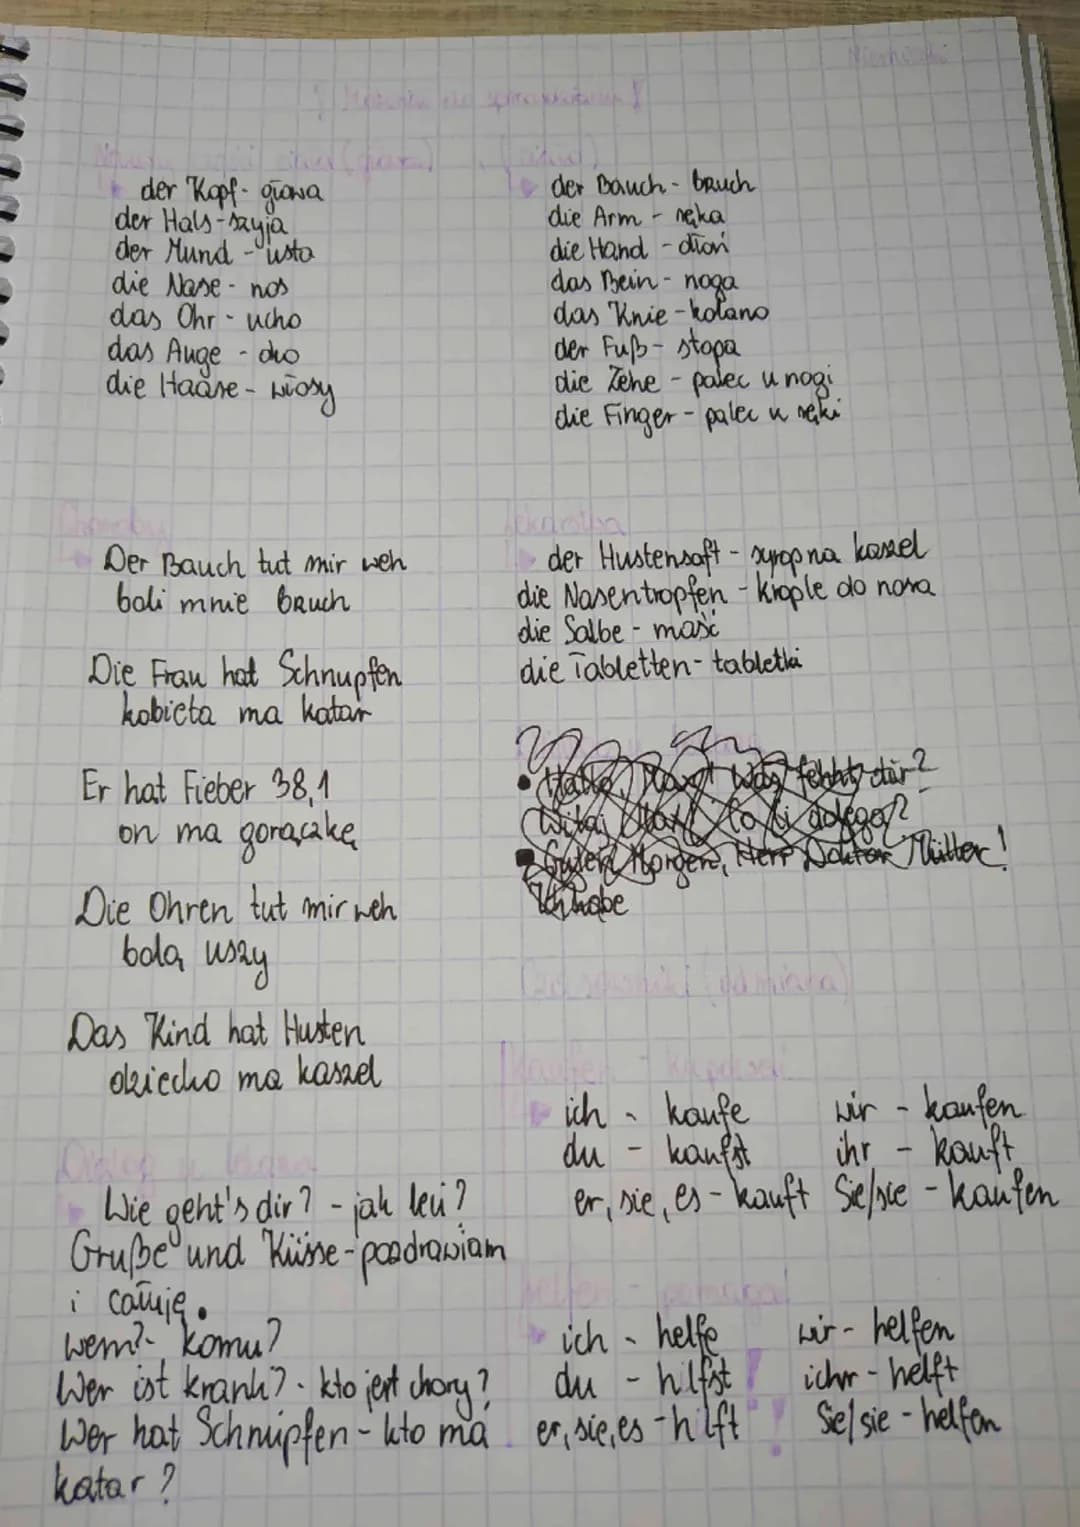 Niemiecki
! Materiał do sprawdzianu !
der Kopf - głowa
der Hals - szyja
der Mund - usta
die Nase - nos
das Ohr - ucho
das Auge - oko
die Haare - włosy
(ciało)
der Bauch - brzuch
die Arm - ręka
die Hand - dłoń
das Bein - noga
das Knie - kolano
der Fuß - stopa
die Zehe - palec u nogi
die Finger - palec u ręki
Choroby
Der Bauch tut mir weh
boli mnie brzuch
Die Frau hat Schnupfen
kobieta ma katar
Er hat Fieber 38,1
on ma gorączkę
Die Ohren tut mir weh
bolą uszy
Das Kind hat Husten
dziecko ma kaszel
Dialog u lekarza
Wie geht's dir? - jak leci?
Gruße und Küsse - pozdrawiam
i całuję.
wem? - komu?
Wer ist krank? - kto jest chory?
Wer hat Schnupfen - kto ma
katar?
lekarstwa
der Hustensaft - syrop na kaszel
die Nasentropfen - krople do nosa
die Salbe - maść
die Tabletten - tabletki
Hallo, Max! Was fehht dir?
Witaj Max! Co ci dolega?
Guten Morgen, Herr Doktor Mütter!
Ich habe
Czasowniki (odmiana)
kaufen - kupować
ich - kaufe wir - kaufen
du - kaufst ihr - kauft
er, sie, es - kauft Sie/sie - kaufen
helfen - pomagać
ich - helfe wir - helfen
du - hilfst ! ichr - helft
er, sie, es - hilft ! Sie/sie - helfen